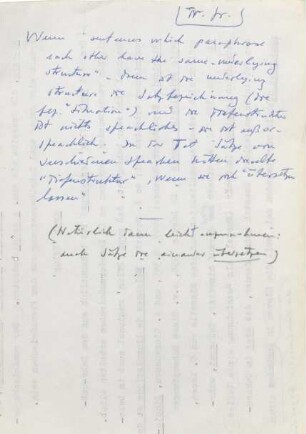 (Tr. Gr.)
Wenn "sentences which paraphrase
each other have the same underlying
structure" – dann ist die underlying
structure die Satzbezeichnung (die
"Situation") und die Tiefenstruktur
ist nichts sprachliches – sie ist außer-
sprachlich. In der Tat Sätze von
verschiedenen Sprachen hätten dieselbe
"Tiefenstruktur", wenn sie sich "übersetzen
lassen"
(Natürlich dann leicht anzunehmen:
auch Sätze die einander übersetzen)